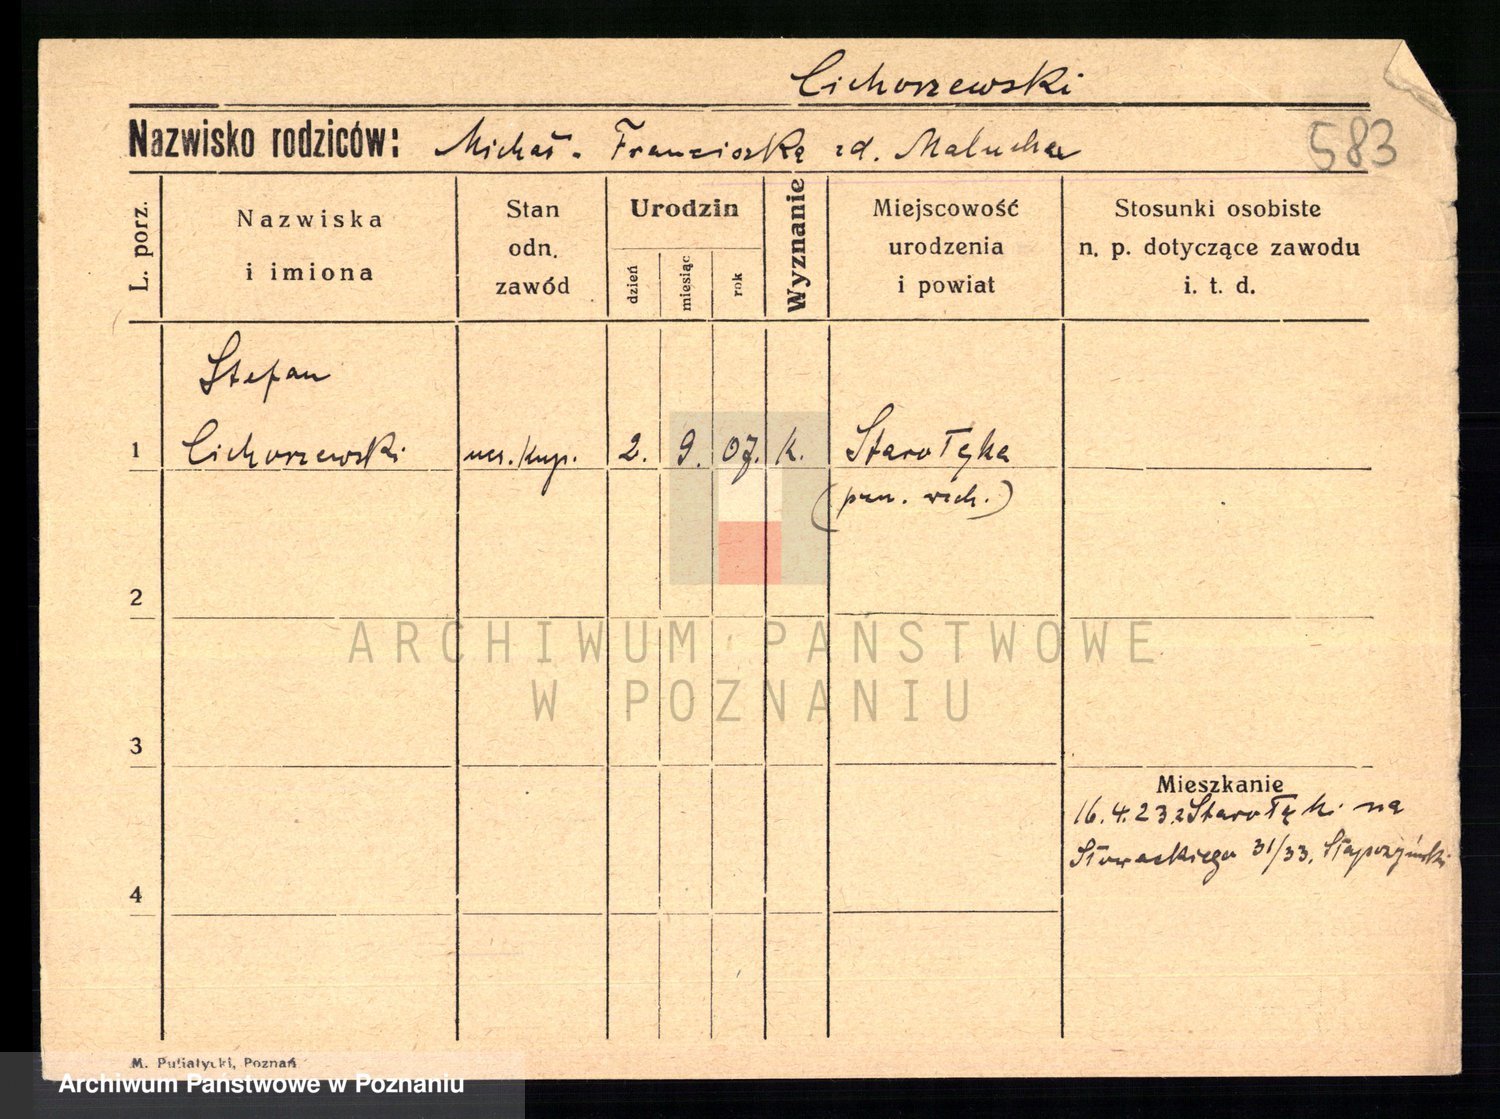 Cichorzewski
Nazwisko rodziców: Michał. Franciszka zd. Malucha
583
L. porz.
Nazwiska
i imiona
Stan
odn.
zawód
Urodzin
dzień
miesiąc
rok
Wyznanie
Miejscowość
urodzenia
i powiat
Stosunki osobiste
n. p. dotyczące zawodu
i. t. d.
Stefan
1 Cichorzewski ucz. kup. 2. 9. 07. k. Starołęka
(pzn. wsch.)
2
ARCHIWUM PAŃSTWOWE
W POZNANIU
3
Mieszkanie
16.4.23 z Starołęki na
Słowackiego 31/33.
4
M. Putiatycki, Poznań
Archiwum Państwowe w Poznaniu